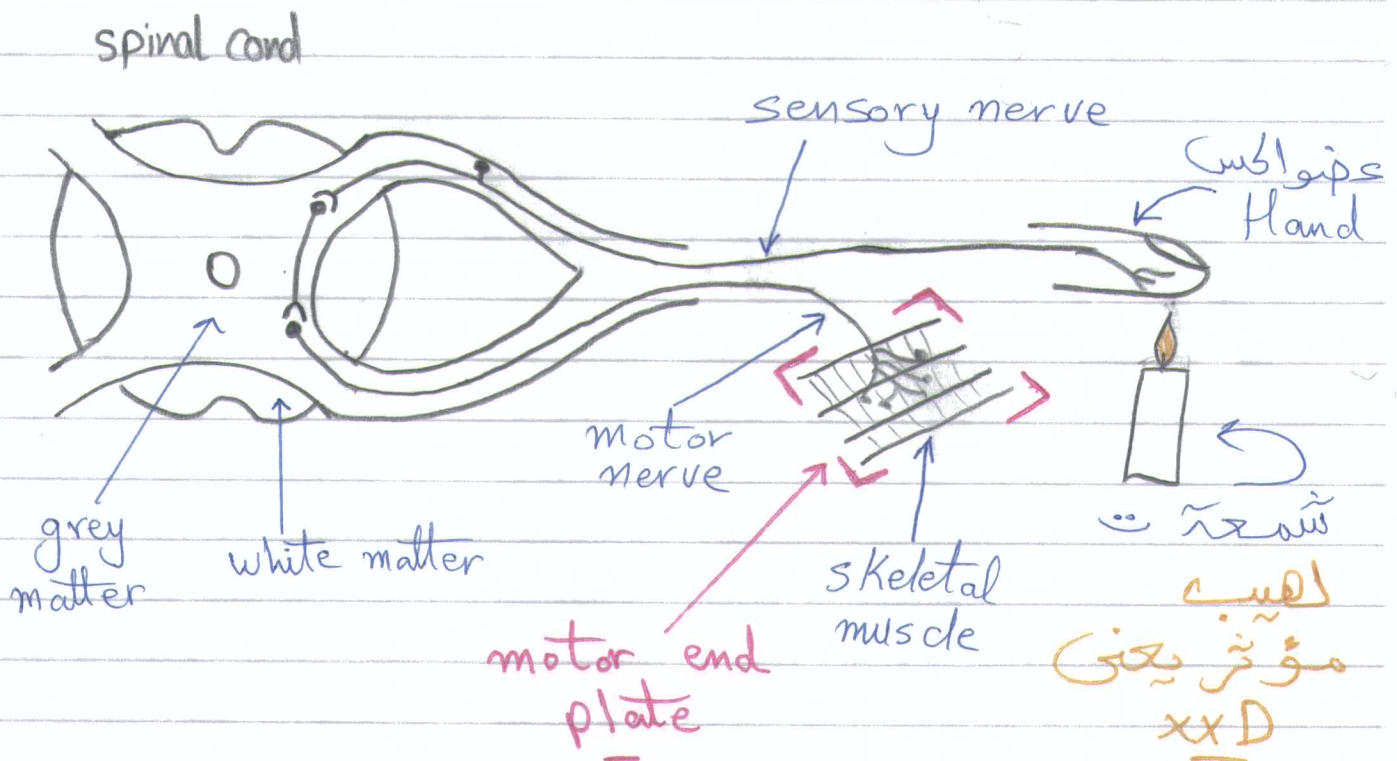 spinal cord
sensory nerve
عضو الحس
Hand
motor
nerve
grey
matter
white matter
skeletal
muscle
شمعة ت
motor end
plate
لهيب
مؤثر يعني
xxD